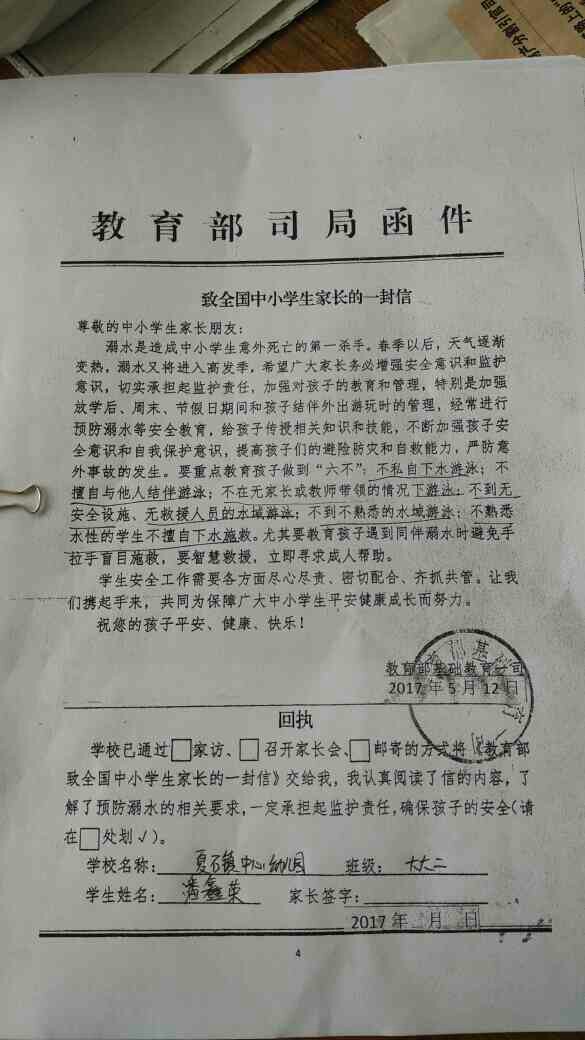 教育部司局函件
致全国中小学生家长的一封信
尊敬的中小学生家长朋友：
溺水是造成中小学生意外死亡的第一杀手。春季以后，天气逐渐
变热，溺水又将进入高发季，希望广大家长务必增强安全意识和监护
意识，切实承担起监护责任，加强对孩子的教育和管理，特别是加强
放学后、周末、节假日期间和孩子结伴外出游玩时的管理，经常进行
预防溺水等安全教育，给孩子传授相关知识和技能，不断加强孩子安
全意识和自我保护意识，提高孩子们的避险防灾和自救能力，严防意
外事故的发生。要重点教育孩子做到“六不”：不私自下水游泳；不
擅自与他人结伴游泳；不在无家长或教师带领的情况下游泳；不到无
安全设施、无救援人员的水域游泳；不到不熟悉的水域游泳；不熟悉
水性的学生不擅自下水施救。尤其要教育孩子遇到同伴溺水时避免手
拉手盲目施救，要智慧救援，立即寻求成人帮助。
学生安全工作需要各方面尽心尽责、密切配合、齐抓共管。让我
们携起手来，共同为保障广大中小学生平安健康成长而努力。
祝您的孩子平安、健康、快乐！
教育部基础教育一司
2017年5月12日
回执
学校已通过□家访、□召开家长会、□邮寄的方式将《教育部
致全国中小学生家长的一封信》交给我，我认真阅读了信的内容，了
解了预防溺水的相关要求，一定承担起监护责任，确保孩子的安全（请
在□处划√）。
学校名称：夏石镇中心幼儿园 班级：大大二
学生姓名：潘鑫荣 家长签字：
2017年 月 日
4